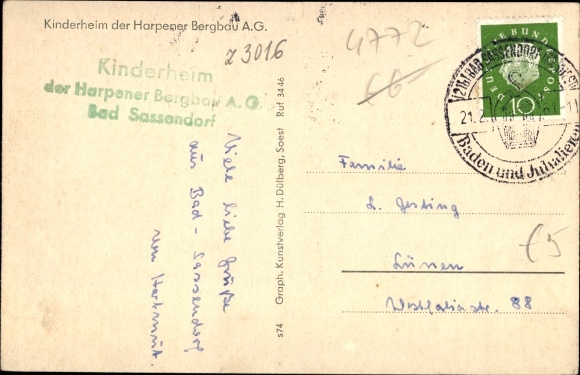 Kinderheim der Harpener Bergbau A.G.
z 3016
4772
Kinderheim
der Harpener Bergbau A. G.
Bad Sassendorf
Viele liebe Grüße
aus Bad - Sassendorf
von Hartmut.
s74 Graph. Kunstverlag H. Dülberg, Soest Ruf 3446
DEUTSCHE BUNDESPOST
10
(21b) BAD SASSENDORF
21.2.
Baden und Inhalieren
Familie
L. Gesting
Lünen
Westfaliastr. 88
£5